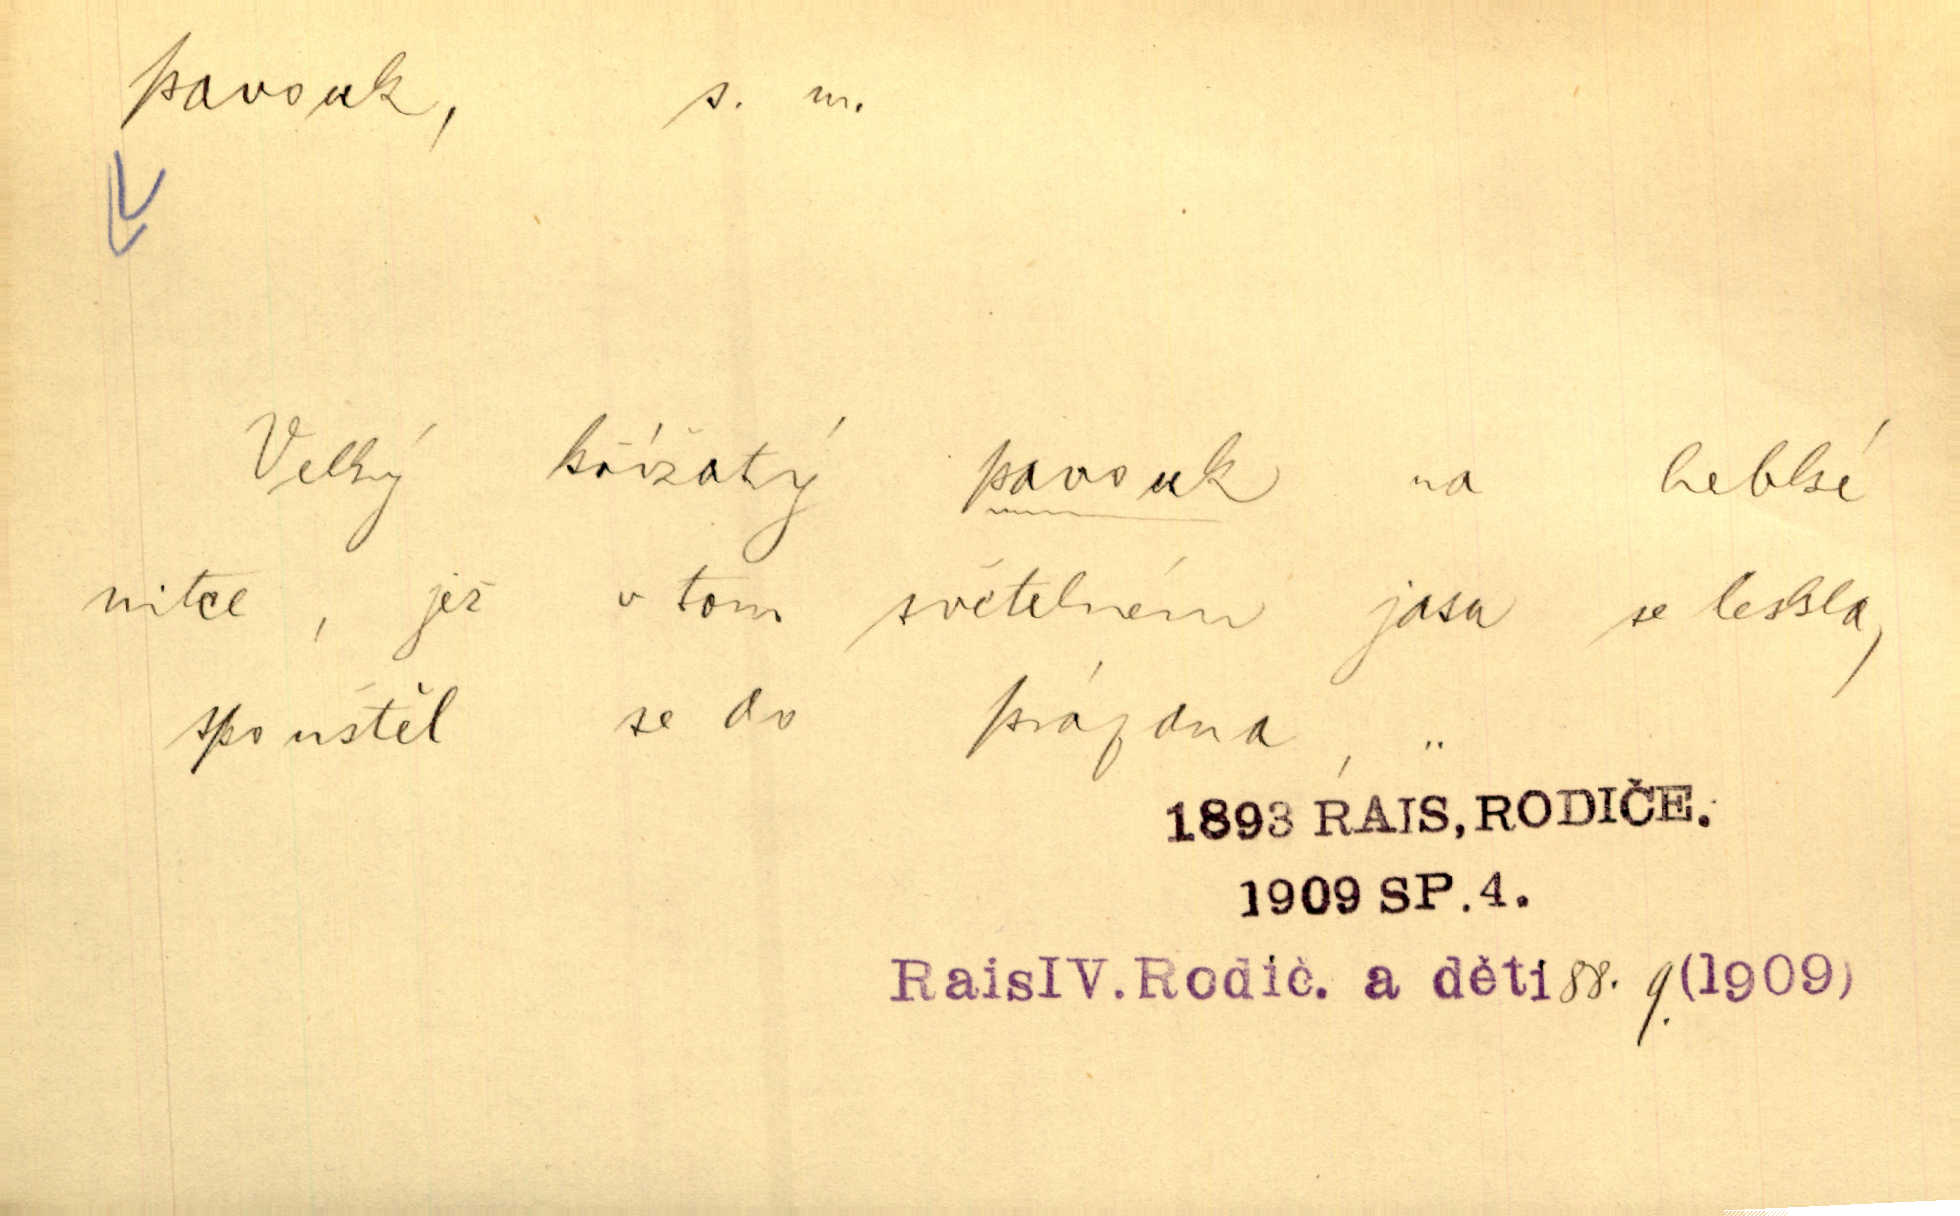 pavouk, s. m.
Velký křížatý pavouk na hebké
nitce, jež v tom světelném jasu se leskla,
spouštěl se do prázdna, ..
1893 RAIS, RODIČE.
1909 SP. 4.
RaisIV. Rodič. a děti 88. 9. (1909)